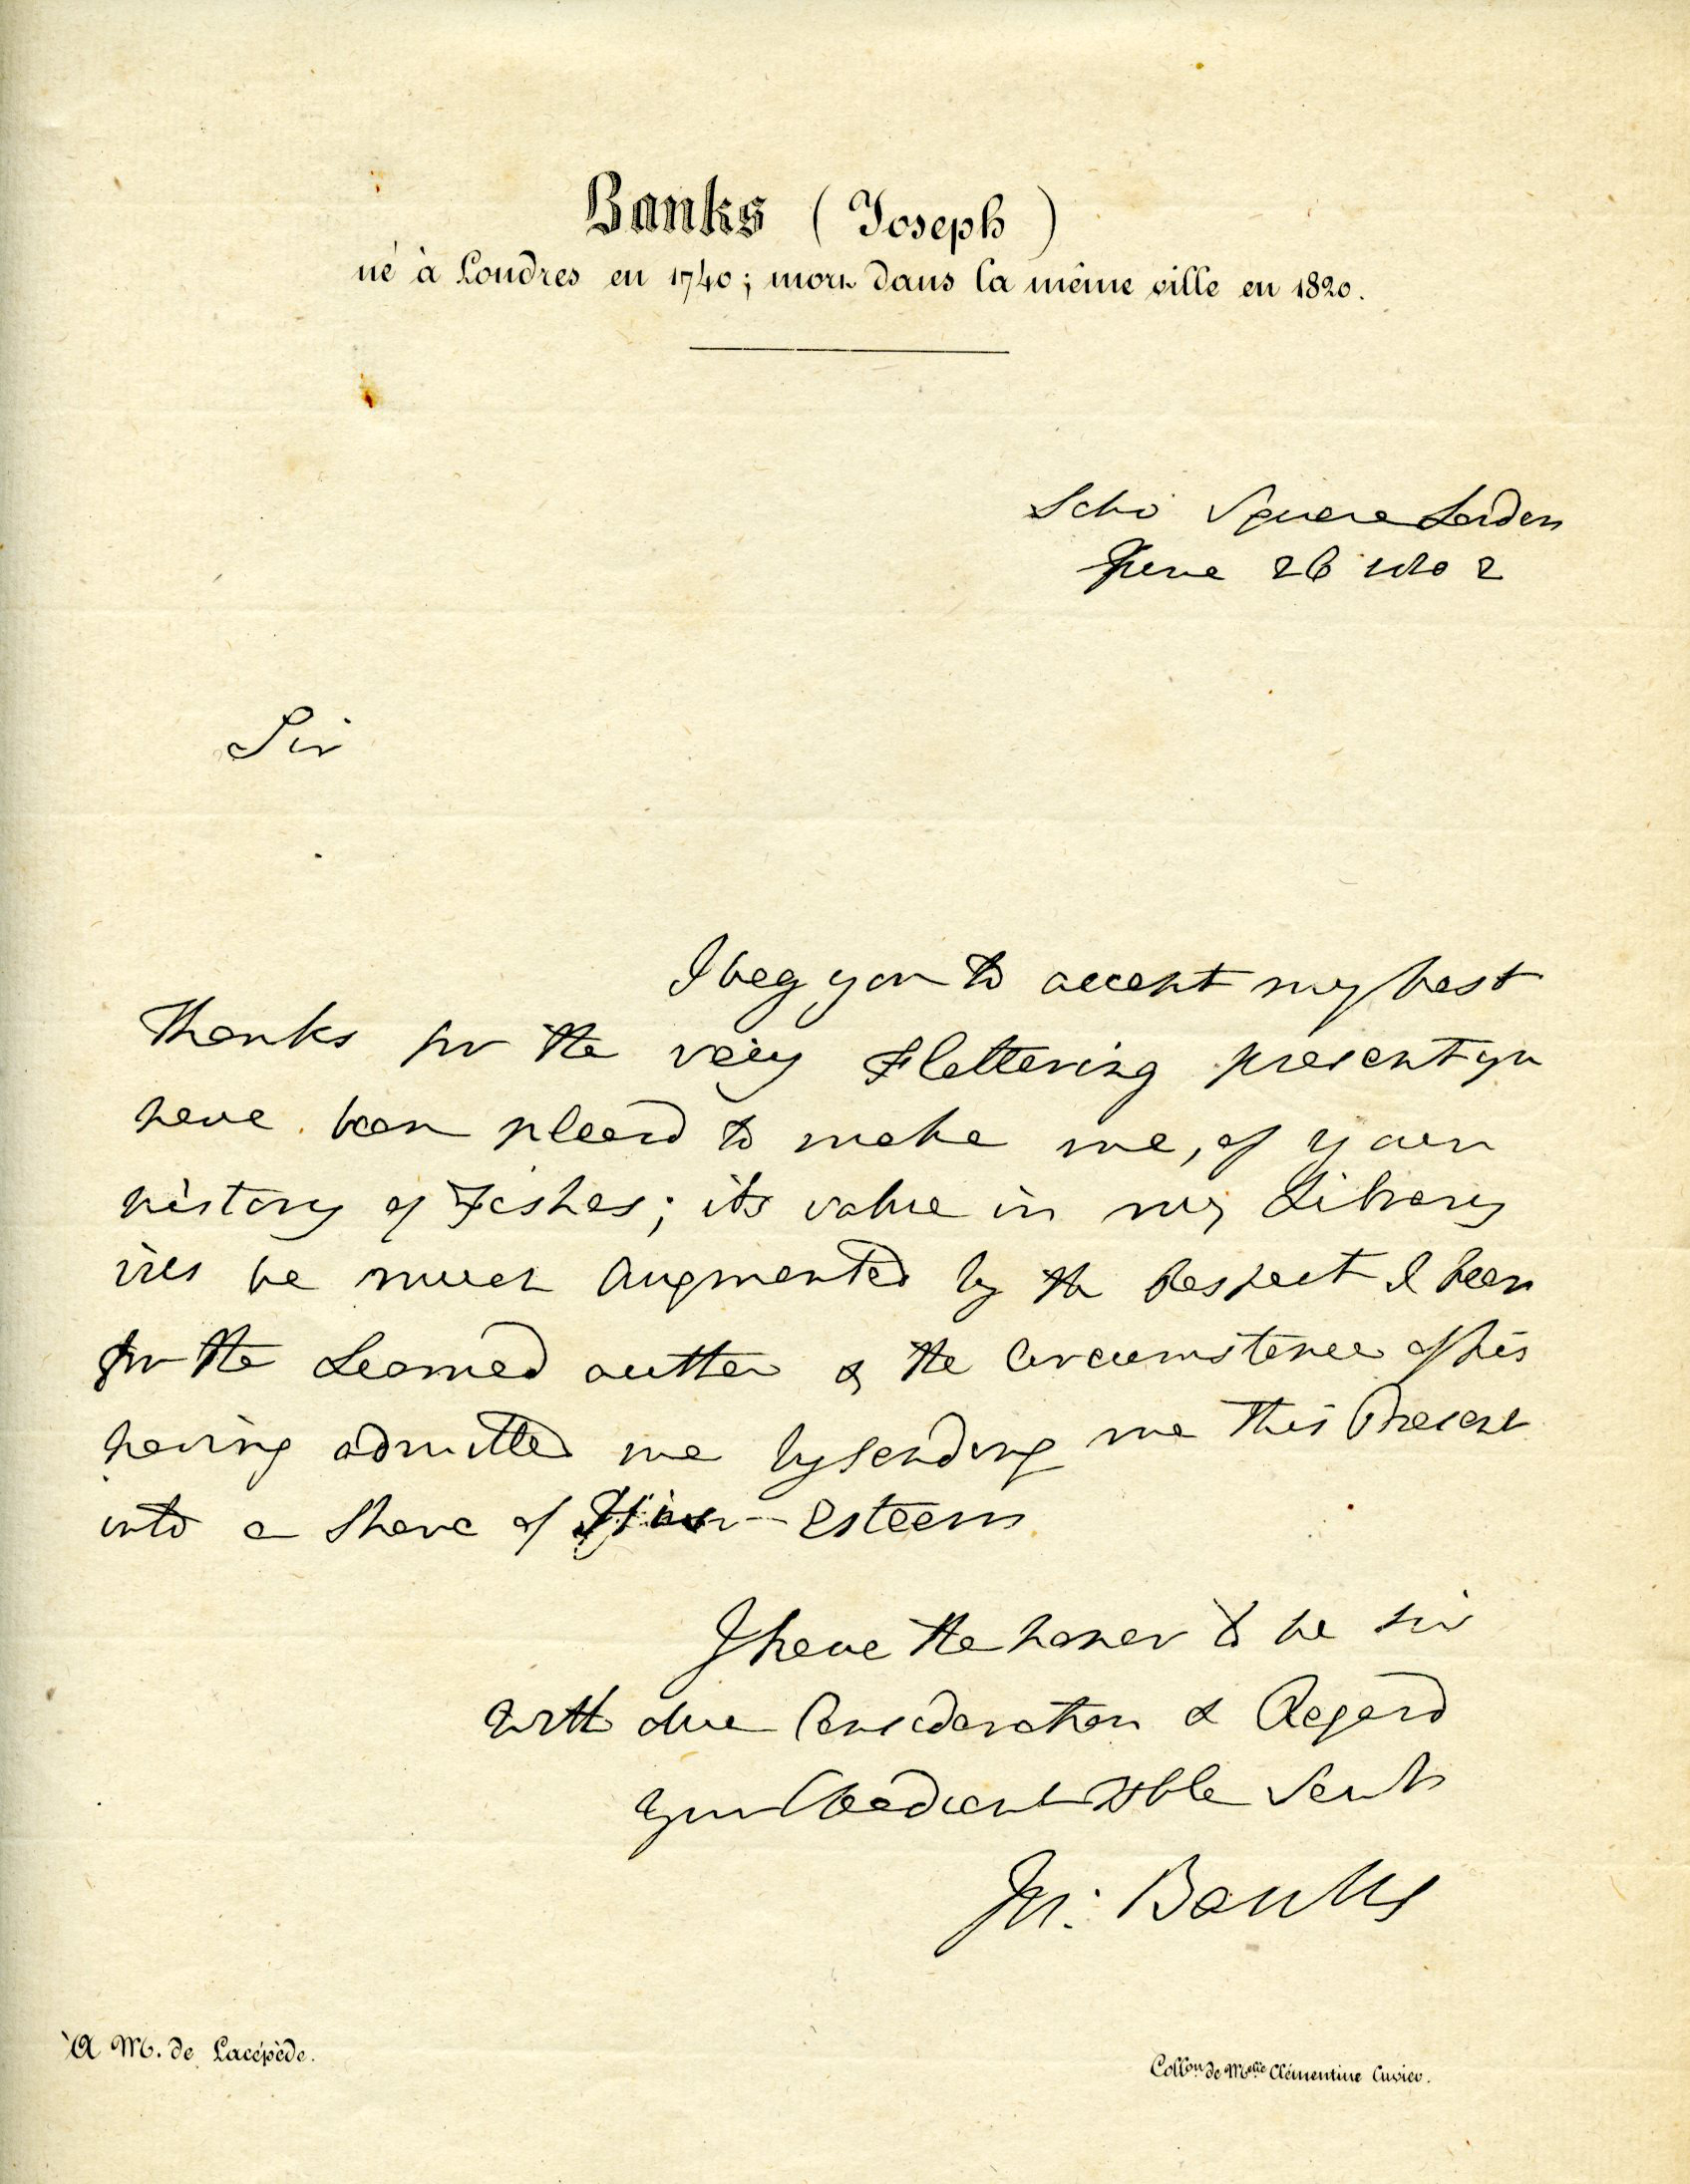 Banks (Joseph)
né à Londres en 1740; mort dans la même ville en 1820.
Soho Square London
June 26 1802
Sir
I beg you to accept my best
thanks for the very Flattering present you
have been pleasd to make me, of your
history of Fishes; its value in my Library
will be much Augmented by the Respect I bear
for the Learned author & the Circumstance of his
having admitted me by sending me this Present
into a Share of His Esteem
I have the honor to be Sir
With due Consideration & Regard
Your Obedient Hble Servt
Jos: Banks
À M. de Lacépède.
Collon. de Melle Clémentine Cuvier.